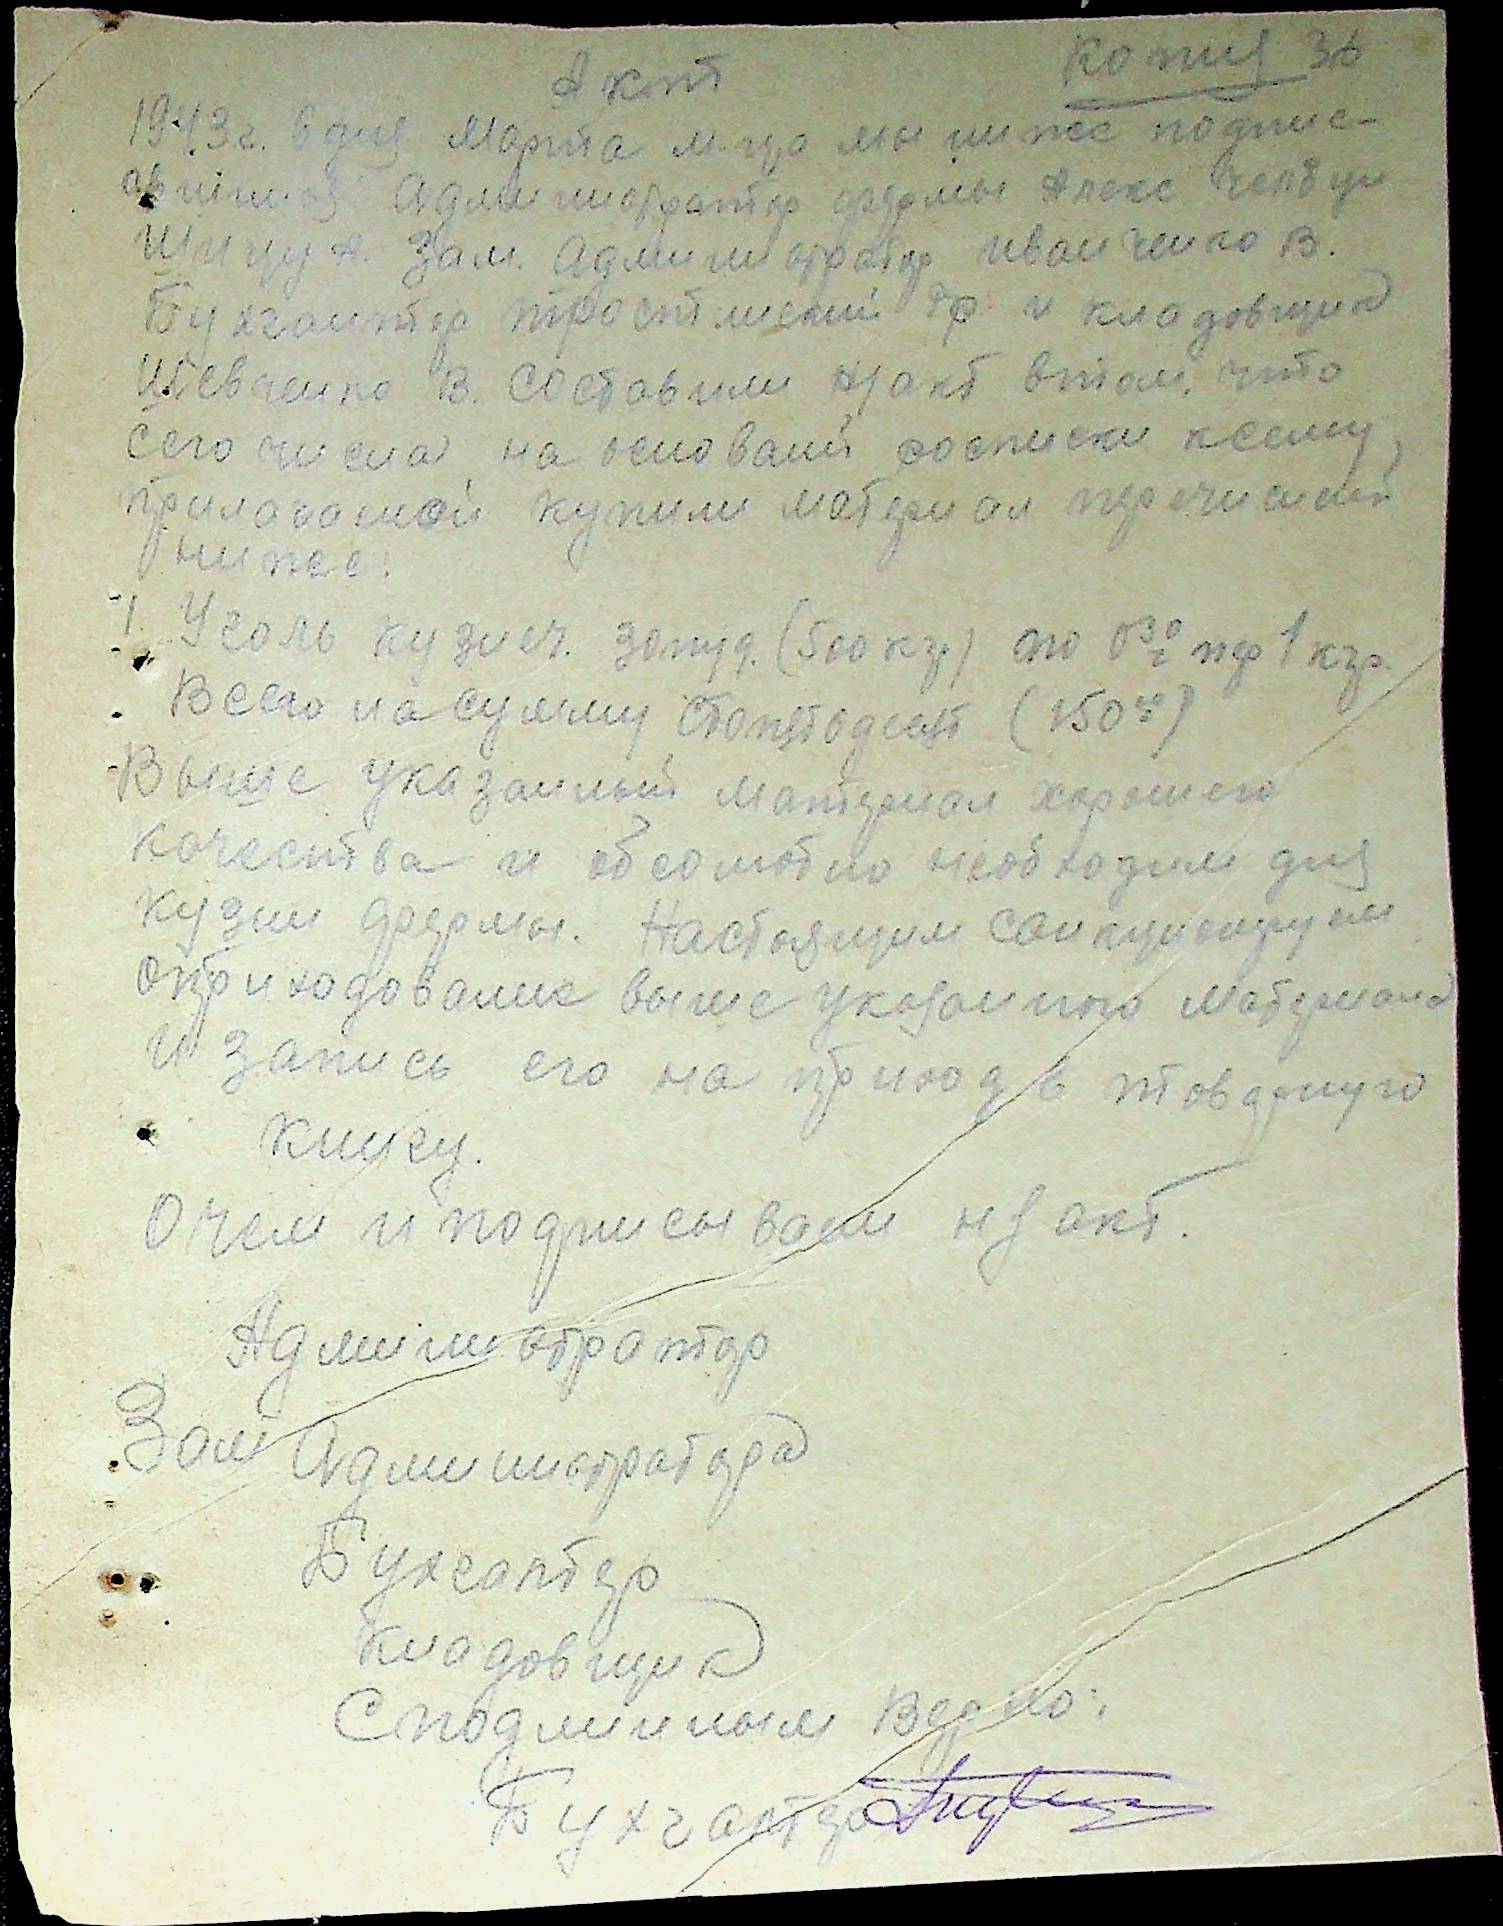 Копия 36
Акт
1943 г. 8 дня Марта м-ца мы ниже подпис-
авшися Администратор фермы Алекс
А. Зам. Администратор Иванченко В.
Бухгалтер Гр. и кладовщик
Шевченко В. составили н/акт втом, что
сего числа на оснований росписки ксему
прилагаемой купили материал перечислен
ниже:
1. Уголь кузнеч. 30 пуд. (500 кгр) по 030 1 кгр.
Всего на сумму Стопятьдесят (150)
Выше указанный материал хорошего
качества и обсолютно необходим для
кузни фермы. Настоящим санкционируем
оприходование выше указанного материала
и запись его на приход в товарную
книгу.
Очем и подписываем н/акт.
Администратор
Зам Администратора
Бухгалтер
Кладовщик
Сподлинным Верно:
Бухгалтер